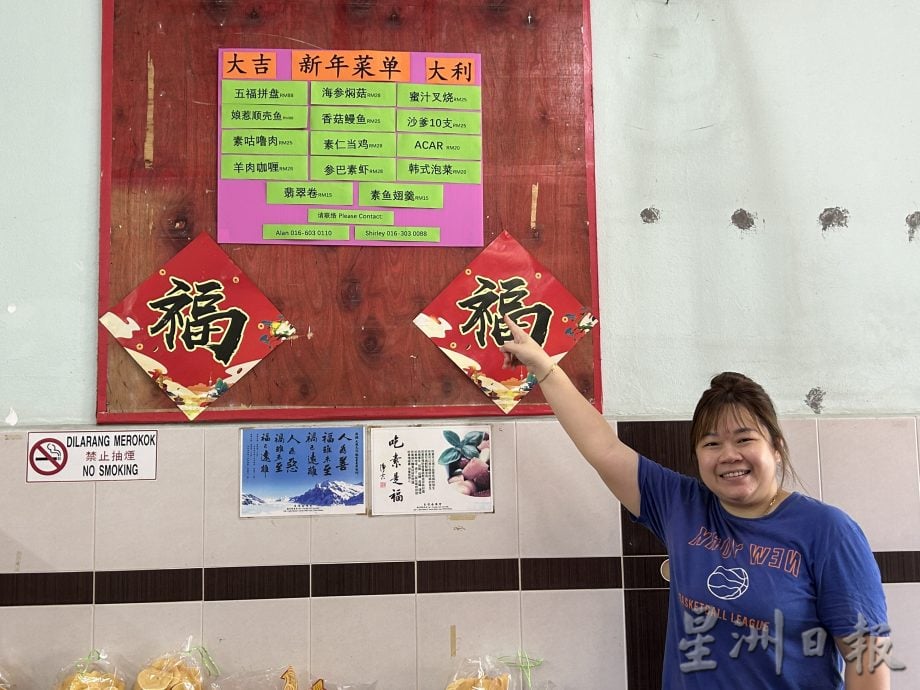 大吉 新年菜单 大利
五福拼盘RM88 海参焖菇RM28 蜜汁叉烧RM25
娘惹顺壳鱼 香菇鳗鱼RM25 沙爹10支RM25
素咕噜肉RM25 素仁当鸡RM28 ACAR RM20
羊肉咖喱RM28 参巴素虾RM28 韩式泡菜RM20
翡翠卷RM15 素鱼翅羹RM15
请联络 Please Contact:
Alan 016-603 0110 Shirley 016-303 0088
福 福
DILARANG MEROKOK
禁止抽煙
NO SMOKING
人為善
福雖未至
禍已遠離
人為惡
禍雖未至
福已遠離
吃素是福
NEW YORK
BASKETBALL LEAGUE
星洲日报